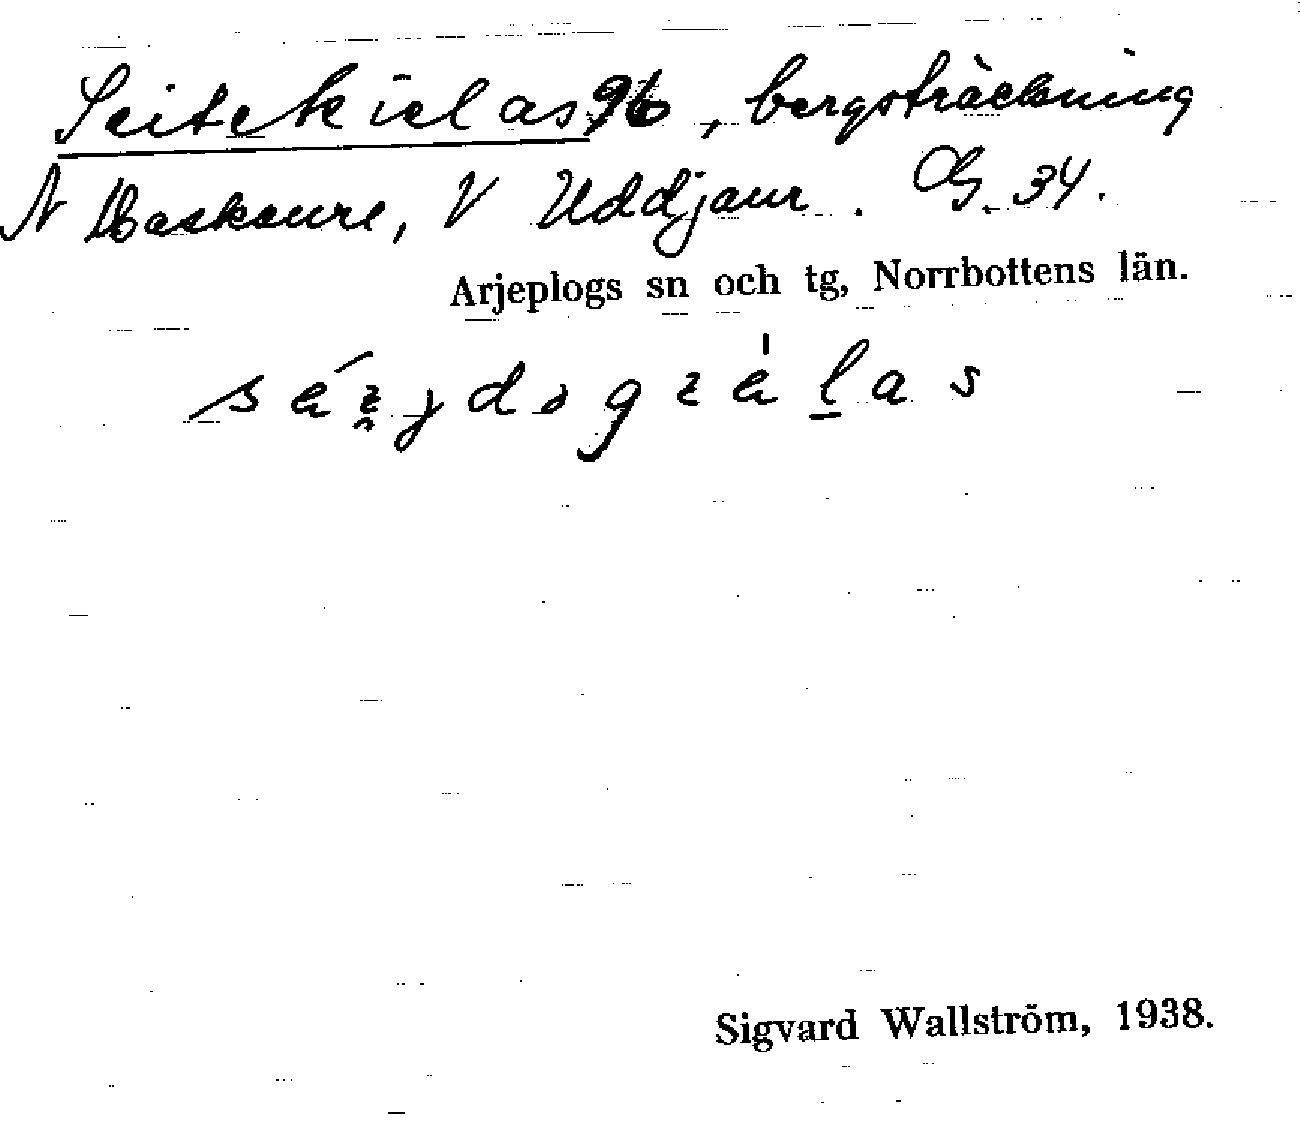 Seitekielas 96, bergsträckning
N Maskaure, V Uddjaur. Gg. 34.
Arjeplogs sn och tg, Norrbottens län.
Sigvard Wallström, 1938.